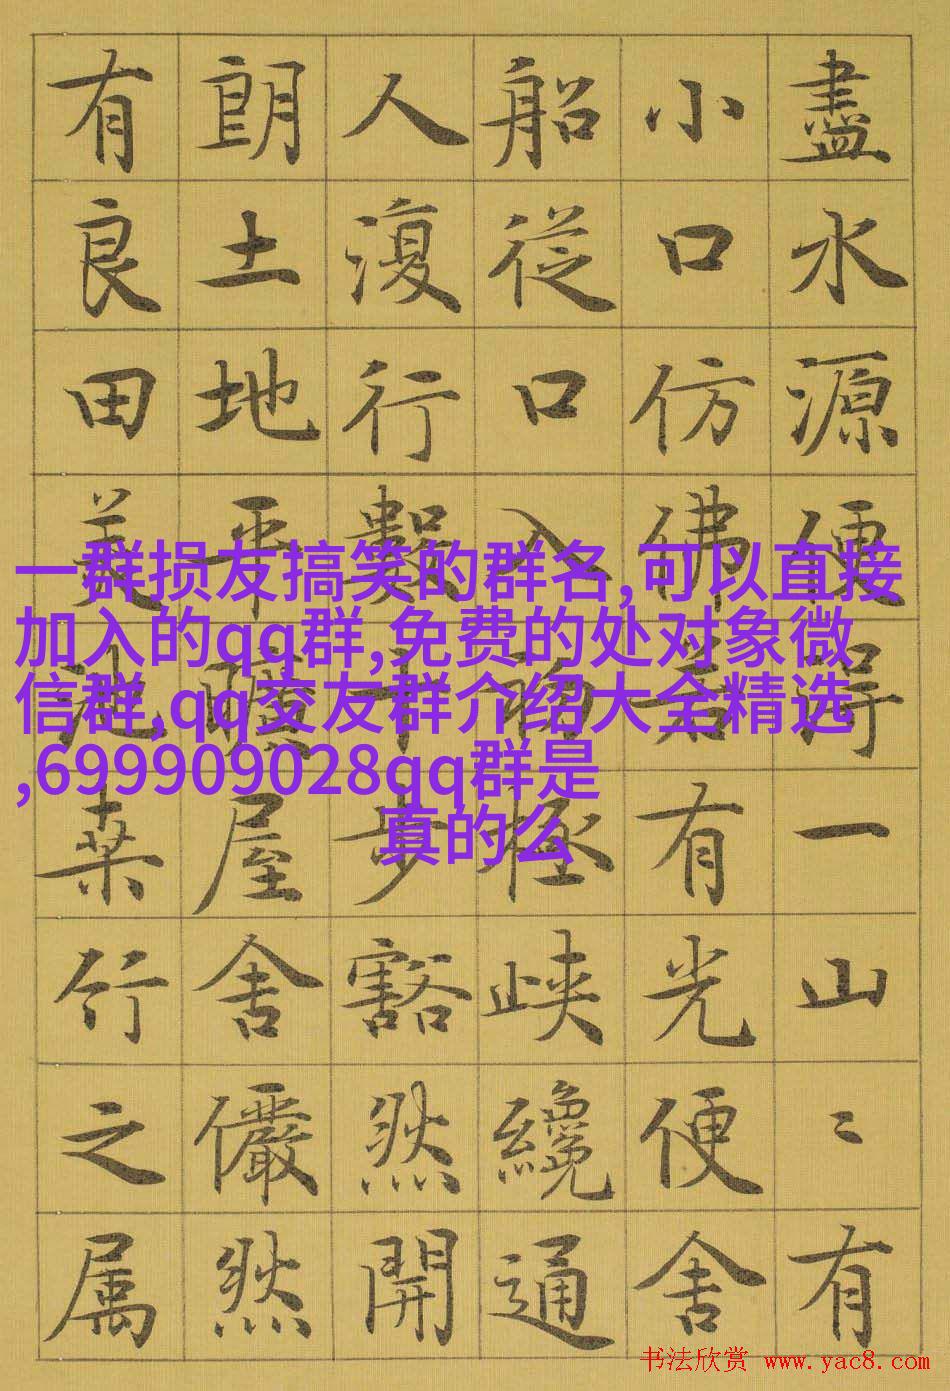 盡水源便得一山〻有
小口仿佛若有光便舍
船從口入初極峽纔通
人復行數十步豁然開
朗土地平曠屋舍儼然
有良田美池桒竹之属
一群损友搞笑的群名,可以直接
加入的qq群,免费的处对象微
信群,qq交友群介绍大全精选
,699909028qq群是
真的么
书法欣赏 www.yac8.com